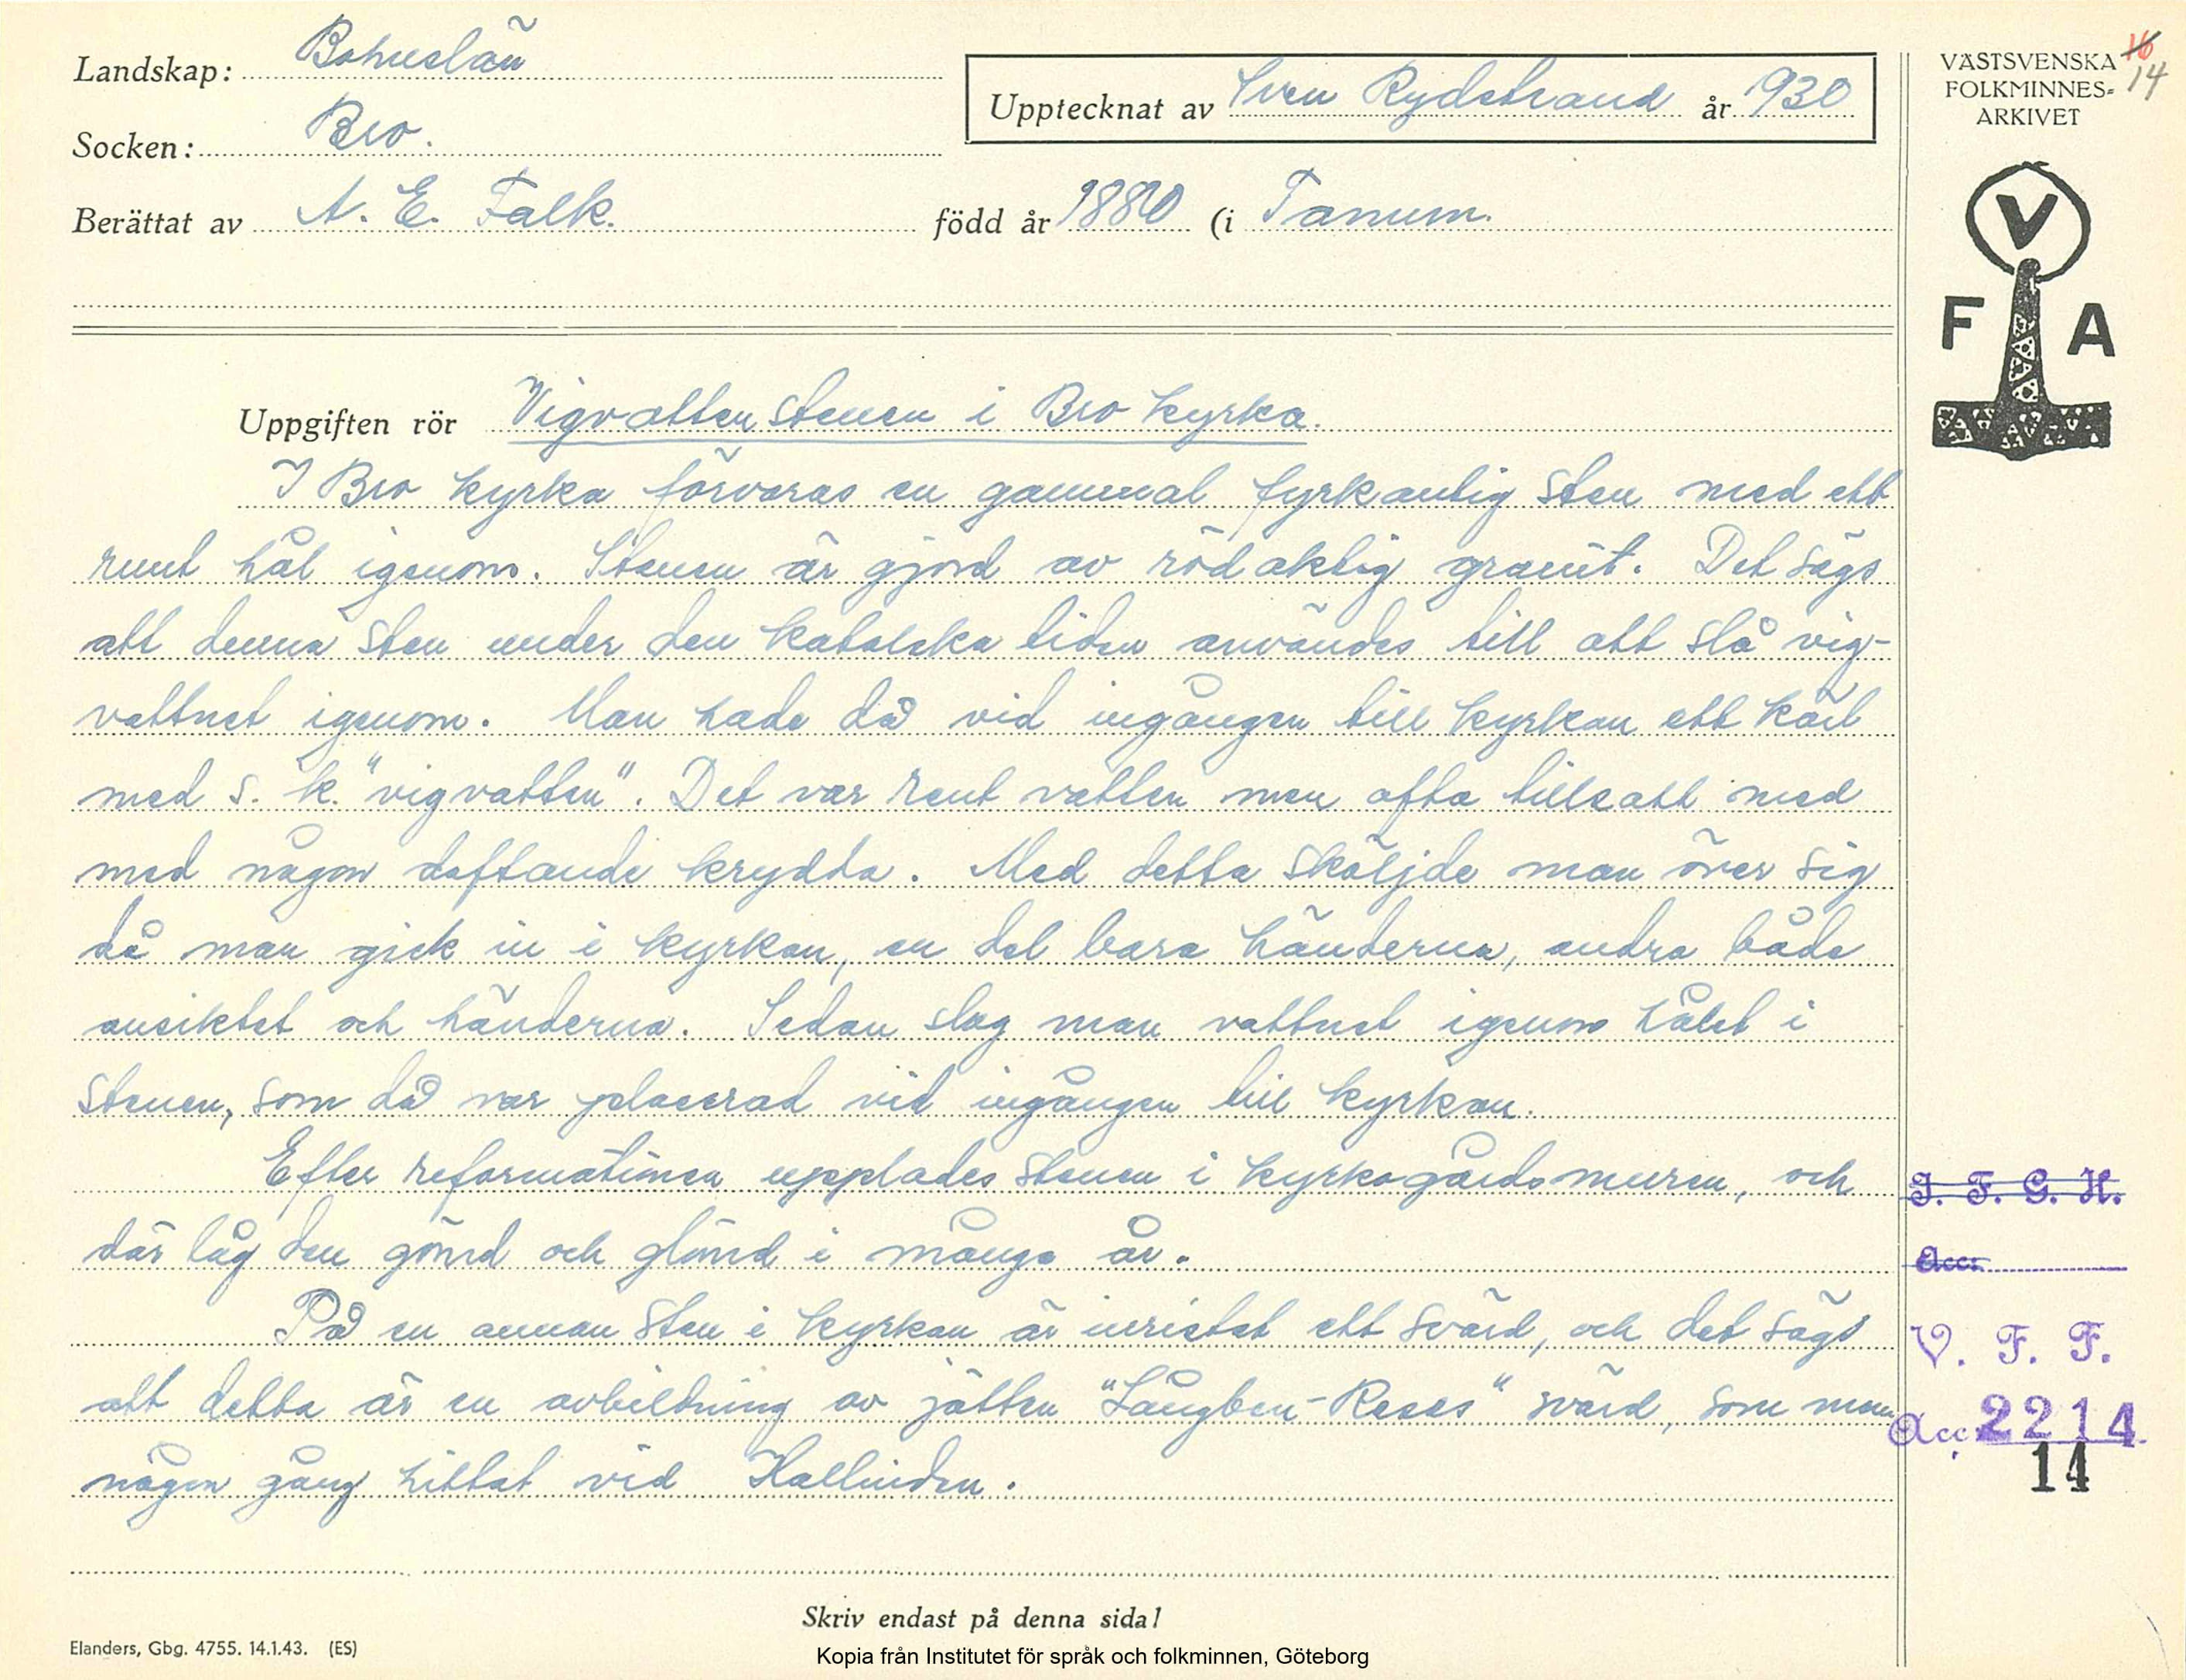 Landskap: Bohuslän
Upptecknat av Sven Rydstrand år 1930
Socken: Bro.
Berättat av A. E. Falk. född år 1880 (i Tanum.
VÄSTSVENSKA
FOLKMINNES=
ARKIVET
16
14
V
F A
Uppgiften rör Vigvattenstenen i Bro kyrka.
I Bro kyrka förvaras en gammal fyrkantig sten med ett
runt hål igenom. Stenen är gjord av rödaktig granit. Det sägs
att denna sten under den katolska tiden användes till att slå vig-
vattnet igenom. Man hade då vid ingången till kyrkan ett kärl
med s. k. "vigvatten". Det var rent vatten men ofta tillsatt med
med någon doftande krydda. Med detta sköljde man över sig
då man gick in i kyrkan, en del bara händerna, andra både
ansiktet och händerna. Sedan slog man vattnet igenom hålet i
stenen, som då var placerad vid ingången till kyrkan.
Efter reformationen upplades stenen i kyrkogårdsmuren, och
där låg den gömd och glömd i många år.
På en annan sten i kyrkan är inristat ett svärd, och det sägs
att detta är en avbildning av jätten "Långben-Reses" svärd, som man
någon gång hittat vid Hallinden.
I. F. G. H.
Acc:
V. F. F.
Acc. 2214
14
Skriv endast på denna sida!
Elanders, Gbg. 4755. 14.1.43. (ES)
Kopia från Institutet för språk och folkminnen, Göteborg